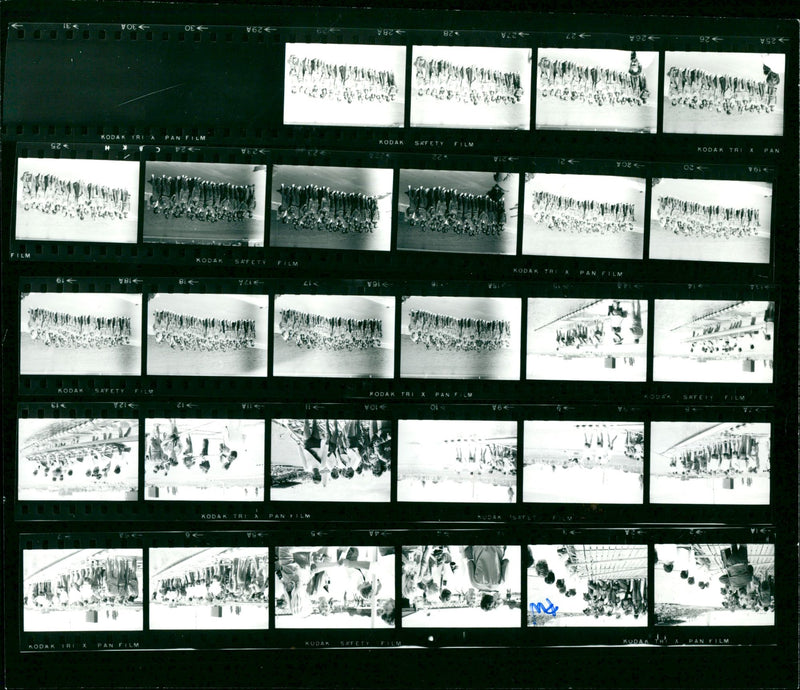 31 30A 30 29A 29 28A 28 27A 27 26A 26 25A
KODAK TRI X PAN FILM KODAK SAFETY FILM KODAK TRI X PAN
25 24 23 22 21 20A 20 19A
FILM KODAK SAFETY FILM KODAK TRI X PAN FILM
19 18A 18 17A 17 16A 16 15A 15 14A 14
KODAK SAFETY FILM KODAK TRI X PAN FILM KODAK SAFETY FILM
13 12A 12 11A 11 10A 10 9A 9
KODAK TRI X PAN FILM KODAK SAFETY FILM
6 5A 5 4A 4
KODAK TRI X PAN FILM KODAK SAFETY FILM KODAK TRI X PAN FILM